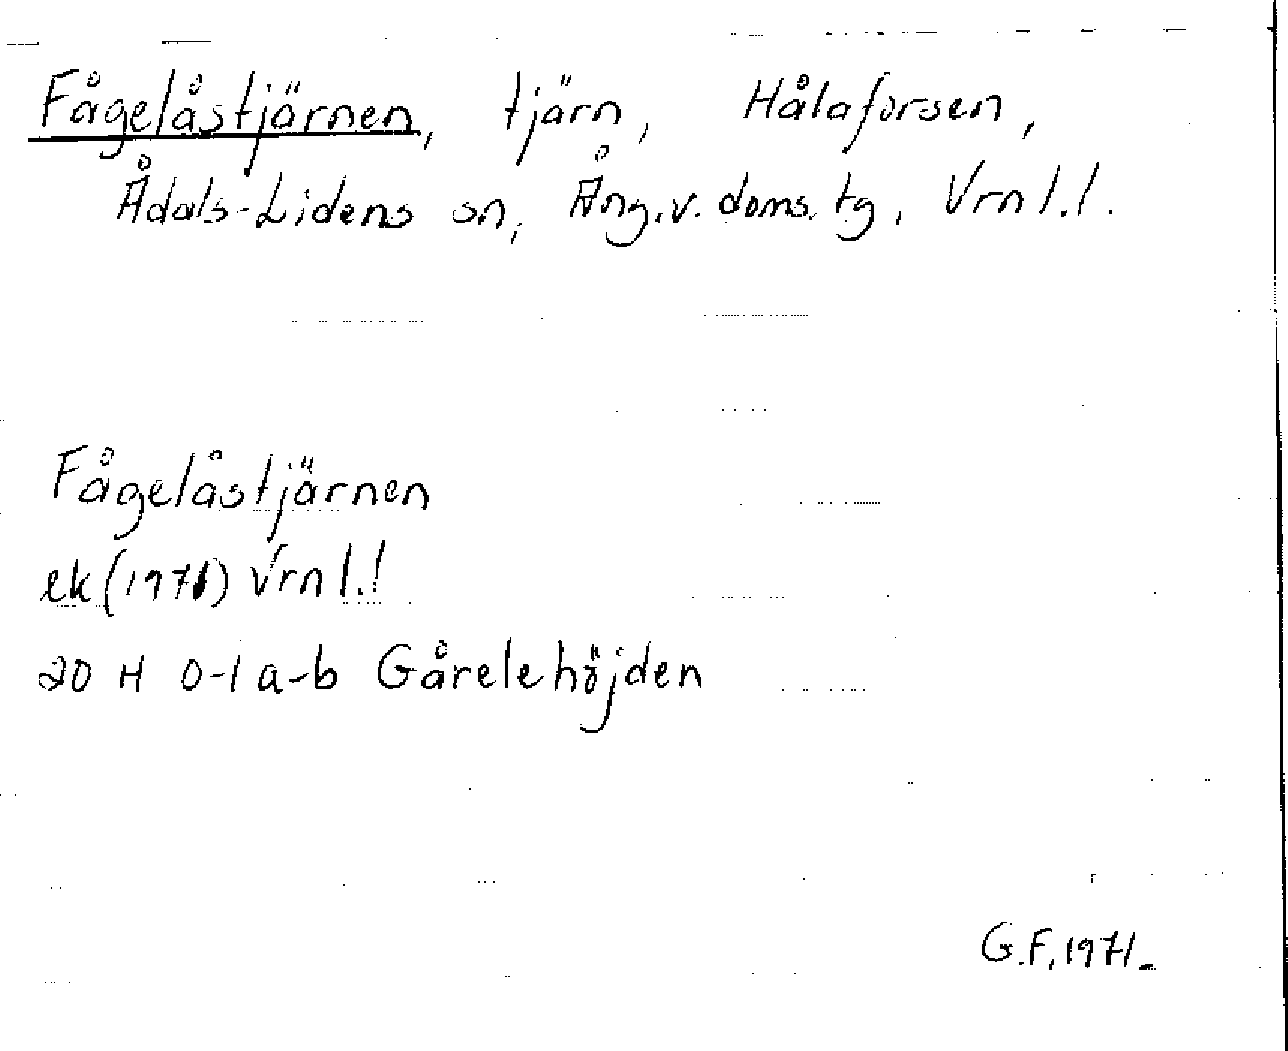 Fågelåstjärnen, tjärn, Hålaforsen,
Ådals-Lidens sn, Ång.v. doms. tg, Vrnl.l.
Fågelåstjärnen
ek (1971) Vrn l.l
20 H 0-1 a-b Gårelehöjden
G.F. 1971.